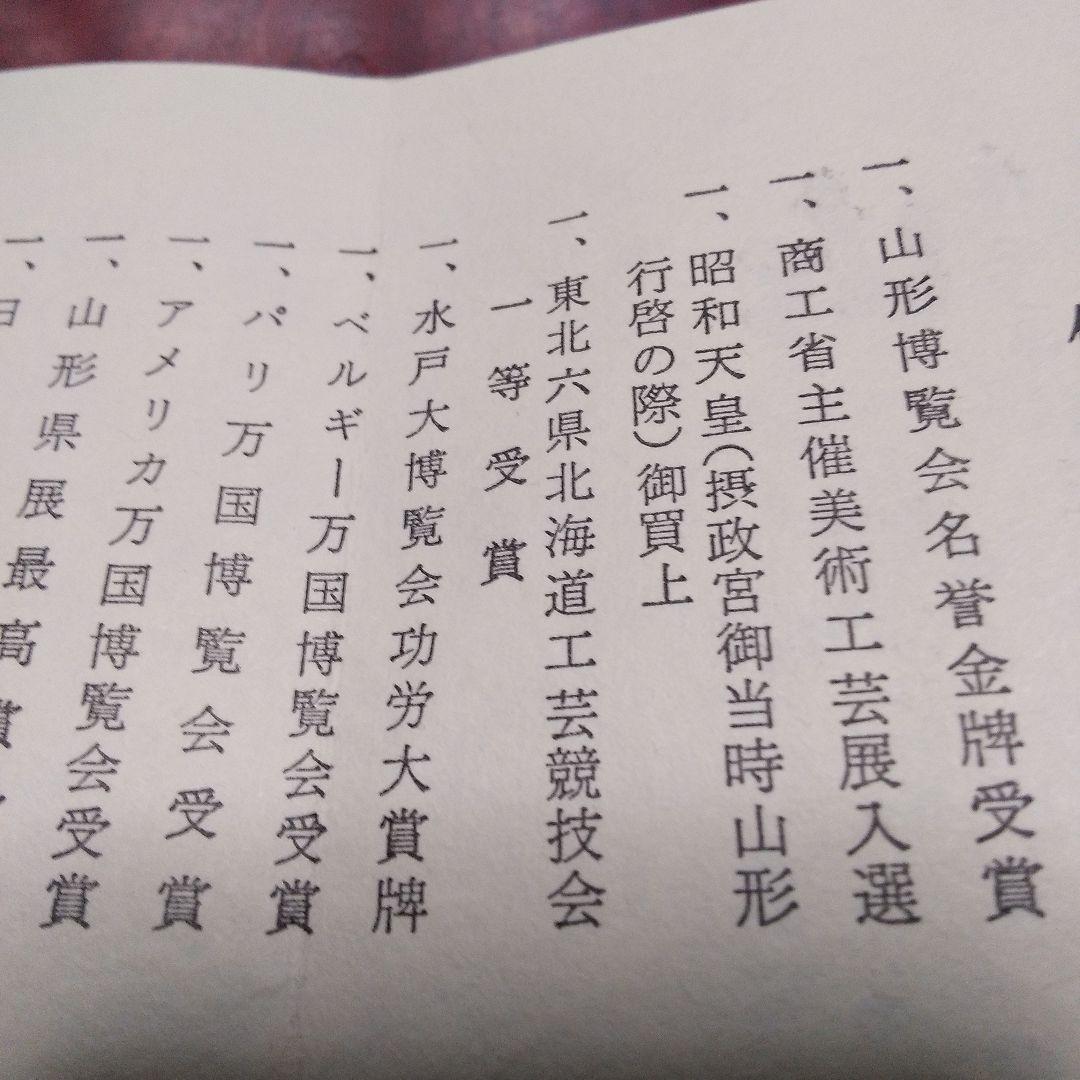 一、山形博覧会名誉金牌受賞
一、商工省主催美術工芸展入選
一、昭和天皇(摂政宮御当時山形
行啓の際)御買上
一、東北六県北海道工芸競技会
一等受賞
一、水戸大博覧会功労大賞牌
一、ベルギー万国博覧会受賞
一、パリ万国博覧会受賞
一、アメリカ万国博覧会受賞
一、山形県展最高賞
一、